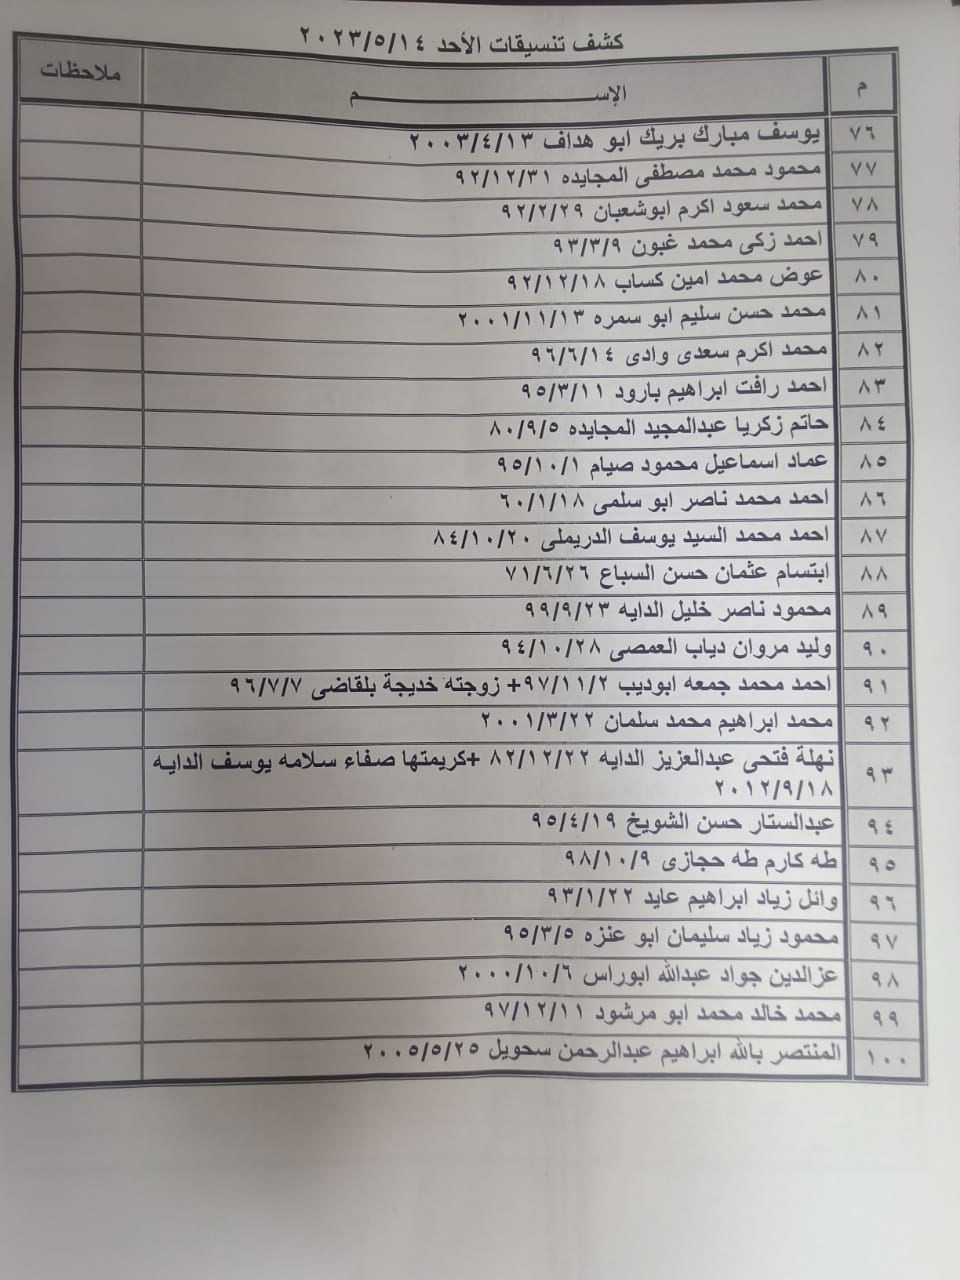 كشف تنسيقات الأحد ٢٠٢٣/٥/١٤
م الإســـــــــــــــــــــــــم ملاحظات
٧٦ يوسف مبارك بريك ابو هداف ٢٠٠٣/٤/١٣
٧٧ محمود محمد مصطفى المجايده ٩٢/١٢/٣١
٧٨ محمد سعود اكرم ابوشعبان ٩٢/٢/٢٩
٧٩ احمد زكى محمد غبون ٩٣/٣/٩
٨٠ عوض محمد امين كساب ٩٢/١٢/١٨
٨١ محمد حسن سليم ابو سمره ٢٠٠١/١١/١٣
٨٢ محمد اكرم سعدى وادى ٩٦/٦/١٤
٨٣ احمد رافت ابراهيم بارود ٩٥/٣/١١
٨٤ حاتم زكريا عبدالمجيد المجايده ٨٠/٩/٥
٨٥ عماد اسماعيل محمود صيام ٩٥/١٠/١
٨٦ احمد محمد ناصر ابو سلمى ٦٠/١/١٨
٨٧ احمد محمد السيد يوسف الدريملى ٨٤/١٠/٢٠
٨٨ ابتسام عثمان حسن السباع ٧١/٦/٢٦
٨٩ محمود ناصر خليل الدايه ٩٩/٩/٢٣
٩٠ وليد مروان دياب العمصى ٩٤/١٠/٢٨
٩١ احمد محمد جمعه ابوديب ٩٧/١١/٢+ زوجته خديجة بلقاضى ٩٦/٧/٧
٩٢ محمد ابراهيم محمد سلمان ٢٠٠١/٣/٢٢
٩٣ نهلة فتحى عبدالعزيز الدايه ٨٢/١٢/٢٢ +كريمتها صفاء سلامه يوسف الدايه
٢٠١٢/٩/١٨
٩٤ عبدالستار حسن الشويخ ٩٥/٤/١٩
٩٥ طه كارم طه حجازى ٩٨/١٠/٩
٩٦ وائل زياد ابراهيم عايد ٩٣/١/٢٢
٩٧ محمود زياد سليمان ابو عنزه ٩٥/٣/٥
٩٨ عزالدين جواد عبدالله ابوراس ٢٠٠٠/١٠/٦
٩٩ محمد خالد محمد ابو مرشود ٩٧/١٢/١١
١٠٠ المنتصر بالله ابراهيم عبدالرحمن سحويل ٢٠٠٥/٥/٢٥